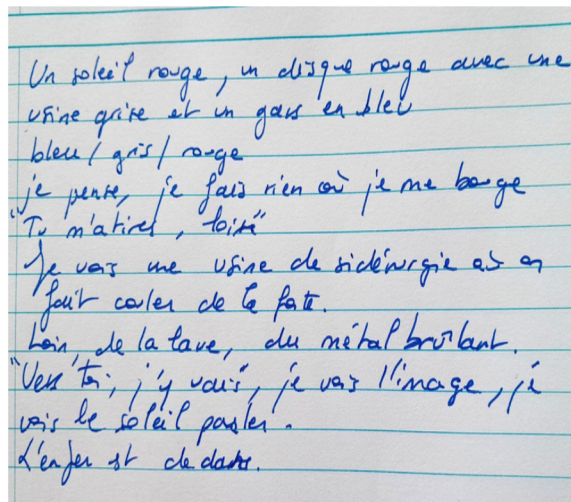 Un soleil rouge, un disque rouge avec une
usine grise et un gars en bleu
bleu / gris / rouge
je pense, je fais rien où je me bouge
"Tu m'atires,
Je vois une usine de sidérurgie où on
fait couler de la
Loin de la lave, du métal brûlant.
"Vers toi, j'y vais", je vois l'image, je
vois le soleil parler.
L'enfer est dedans.